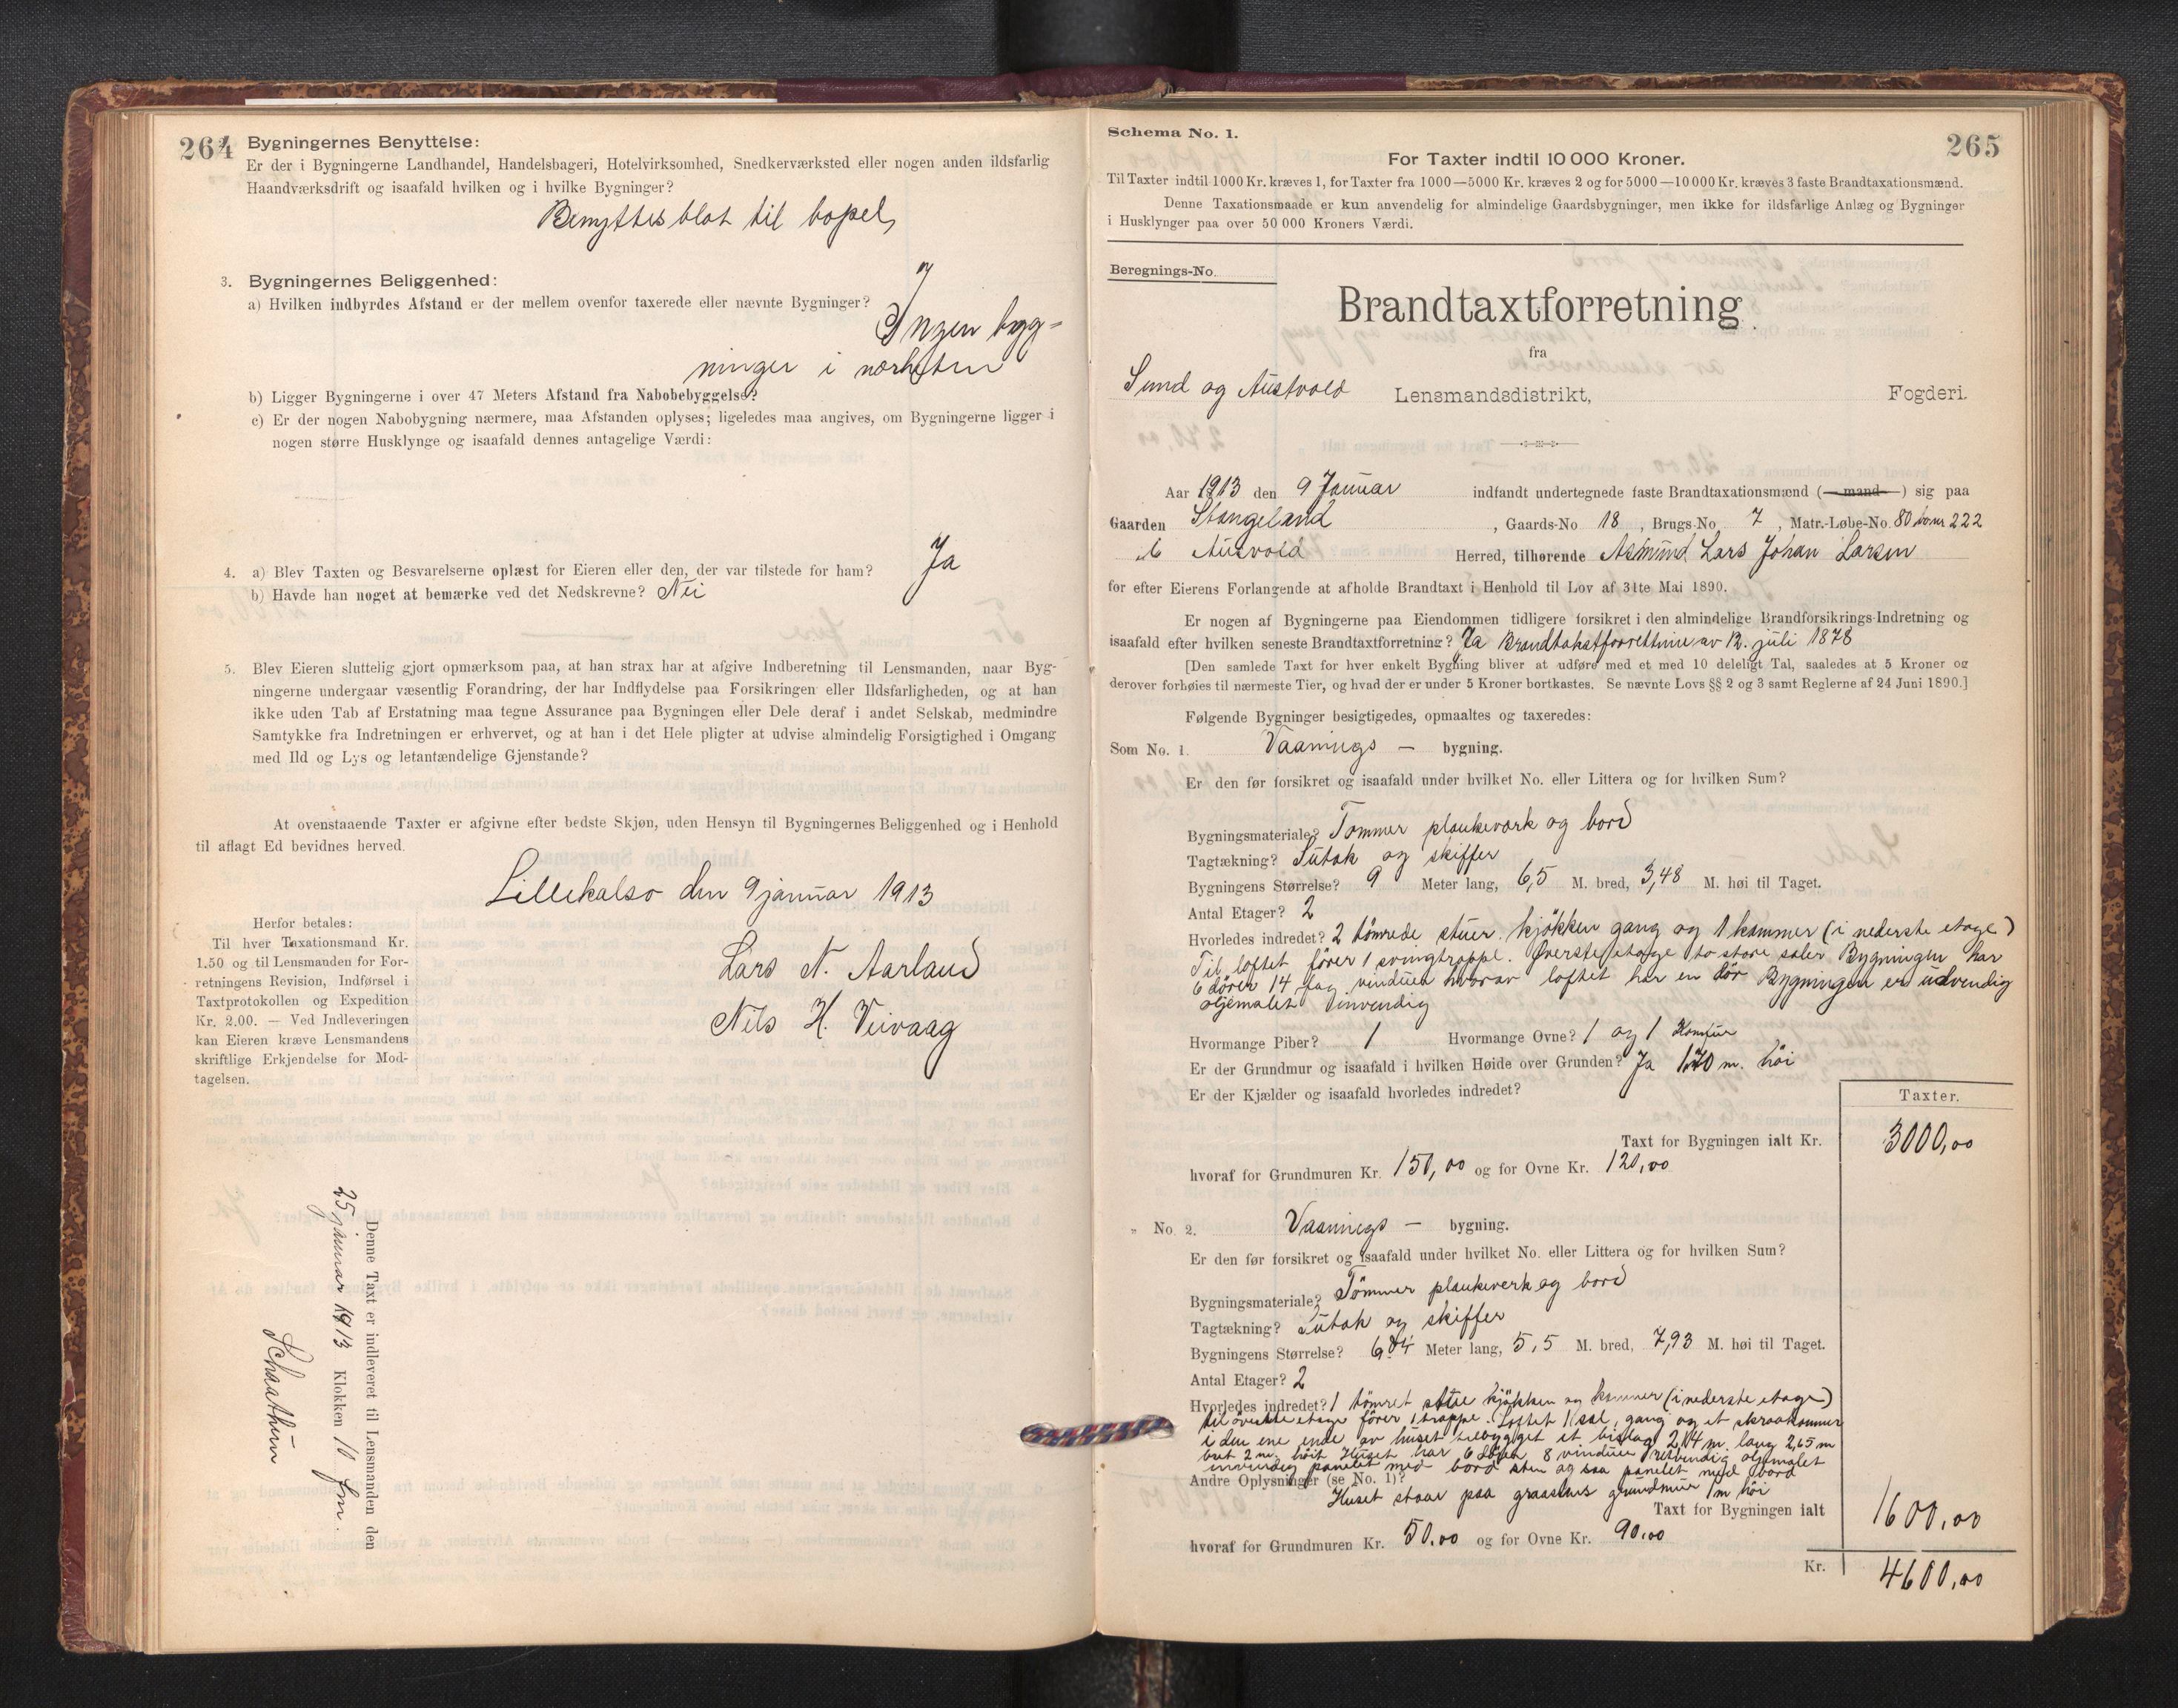 264
Bygningernes Benyttelse:
Er der i Bygningerne Landhandel, Handelsbageri, Hotelvirksomhed, Snedkerværksted eller nogen anden ildsfarlig
Haandværksdrift og isaafald hvilken og i hvilke Bygninger?
Benyttes blot til bopel,
3. Bygningernes Beliggenhed:
a) Hvilken indbyrdes Afstand er der mellem ovenfor taxerede eller nævnte Bygninger?
Ingen byg=
ninger i nærheten
b) Ligger Bygningerne i over 47 Meters Afstand fra Nabobebyggelse?
c) Er der nogen Nabobygning nærmere, maa Afstanden oplyses; ligeledes maa angives, om Bygningerne ligger i
nogen større Husklynge og isaafald dennes antagelige Værdi:
4. a) Blev Taxten og Besvarelserne oplæst for Eieren eller den, der var tilstede for ham? Ja
b) Havde han noget at bemærke ved det Nedskrevne? Nei
5. Blev Eieren sluttelig gjort opmærksom paa, at han strax har at afgive Indberetning til Lensmanden, naar Byg-
ningerne undergaar væsentlig Forandring, der har Indflydelse paa Forsikringen eller Ildsfarligheden, og at han
ikke uden Tab af Erstatning maa tegne Assurance paa Bygningen eller Dele deraf i andet Selskab, medmindre
Samtykke fra Indretningen er erhvervet, og at han i det Hele pligter at udvise almindelig Forsigtighed i Omgang
med Ild og Lys og letantændelige Gjenstande?
At ovenstaaende Taxter er afgivne efter bedste Skjøn, uden Hensyn til Bygningernes Beliggenhed og i Henhold
til aflagt Ed bevidnes herved.
Lillekalsø den 9 januar 1913
Lars N. Aarland
Nils H. Veivaag
Herfor betales:
Til hver Taxationsmand Kr.
1.50 og til Lensmanden for For-
retningens Revision, Indførsel i
Taxtprotokollen og Expedition
Kr. 2.00. — Ved Indleveringen
kan Eieren kræve Lensmandens
skriftlige Erkjendelse for Mod-
tagelsen.
Denne Taxt er indleveret til Lensmanden den
25 januar 1913 Klokken 10 fm.
Schaathun
Schema No. 1.
265
For Taxter indtil 10 000 Kroner.
Til Taxter indtil 1000 Kr. kræves 1, for Taxter fra 1000—5000 Kr. kræves 2 og for 5000—10000 Kr. kræves 3 faste Brandtaxationsmænd.
Denne Taxationsmaade er kun anvendelig for almindelige Gaardsbygninger, men ikke for ildsfarlige Anlæg og Bygninger
i Husklynger paa over 50 000 Kroners Værdi.
Beregnings-No.
Brandtaxtforretning
fra
Sund og Austvold Lensmandsdistrikt, Fogderi.
Aar 1913 den 9 Januar indfandt undertegnede faste Brandtaxationsmænd (— mand —) sig paa
Gaarden Stangeland, Gaards-No 18, Brugs-No 7, Matr.-Løbe-No. 80 222
i Austvold Herred, tilhørende Asmund Lars Johan Larsen
for efter Eierens Forlangende at afholde Brandtaxt i Henhold til Lov af 31te Mai 1890.
Er nogen af Bygningerne paa Eiendommen tidligere forsikret i den almindelige Brandforsikrings-Indretning og
isaafald efter hvilken seneste Brandtaxtforretning? Ja Brandtakstforrettnine av 12. juli 1878
[Den samlede Taxt for hver enkelt Bygning bliver at udføre med et med 10 deleligt Tal, saaledes at 5 Kroner og
derover forhøies til nærmeste Tier, og hvad der er under 5 Kroner bortkastes. Se nævnte Lovs §§ 2 og 3 samt Reglerne af 24 Juni 1890.]
Følgende Bygninger besigtigedes, opmaaltes og taxeredes:
Som No. 1. Vaanings — bygning.
Er den før forsikret og isaafald under hvilket No. eller Littera og for hvilken Sum?
Bygningsmateriale? Tømmer plankeverk og bord
Tagtækning? Sutak og skiffer
Bygningens Størrelse? 9 Meter lang, 6,5 M. bred, 3,48 M. høi til Taget.
Antal Etager? 2
Hvorledes indredet? 2 tömrede stuer kjökken gang og 1 kammer (i nederste etage)
Til loftet förer 1 svingtrappe. Øverste etage to store saler Bygningen har
6 dörer 14 fag vinduer hvorav loftet har en dör Bygningen er udvendig
oljemalet invendig
Hvormange Piber? 1 Hvormange Ovne? 1 og 1 Komfur
Er der Grundmur og isaafald i hvilken Høide over Grunden? Ja 1,70 m. höi
Er der Kjælder og isaafald hvorledes indredet?
Taxter.
Taxt for Bygningen ialt Kr. 3000,00
hvoraf for Grundmuren Kr. 150,00 og for Ovne Kr. 120,00
" No. 2. Vaanings — bygning.
Er den før forsikret og isaafald under hvilket No. eller Littera og for hvilken Sum?
Bygningsmateriale? Tömmer plankeverk og bord
Tagtækning? Sutak og skiffer
Bygningens Størrelse? 6,04 Meter lang, 5,5 M. bred, 7,93 M. høi til Taget.
Antal Etager? 2
Hvorledes indredet? 1 tömret stue kjökken og kammer (i nederste etage)
til överste etage förer 1 trappe. Loftet 1 sal, gang og et skraakammer
i den ene ende av huset tilbygget et bislag 2,14 m. lang 2,65 m
bret 2 m. höit Huset har 6 dörer 8 vinduer utvendig oljemalet
invendig panelet med bord og saa panelet med bord
Andre Oplysninger (se No. 1)?
Huset staar paa graastens grundmur 1 m höi
Taxt for Bygningen ialt 1600,00
hvoraf for Grundmuren Kr. 50.00 og for Ovne Kr. 90.00
Kr. 4600,00